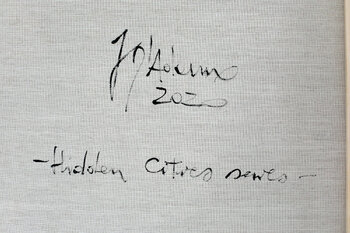 J D'Adamo
2020
-Hidden Cities series-